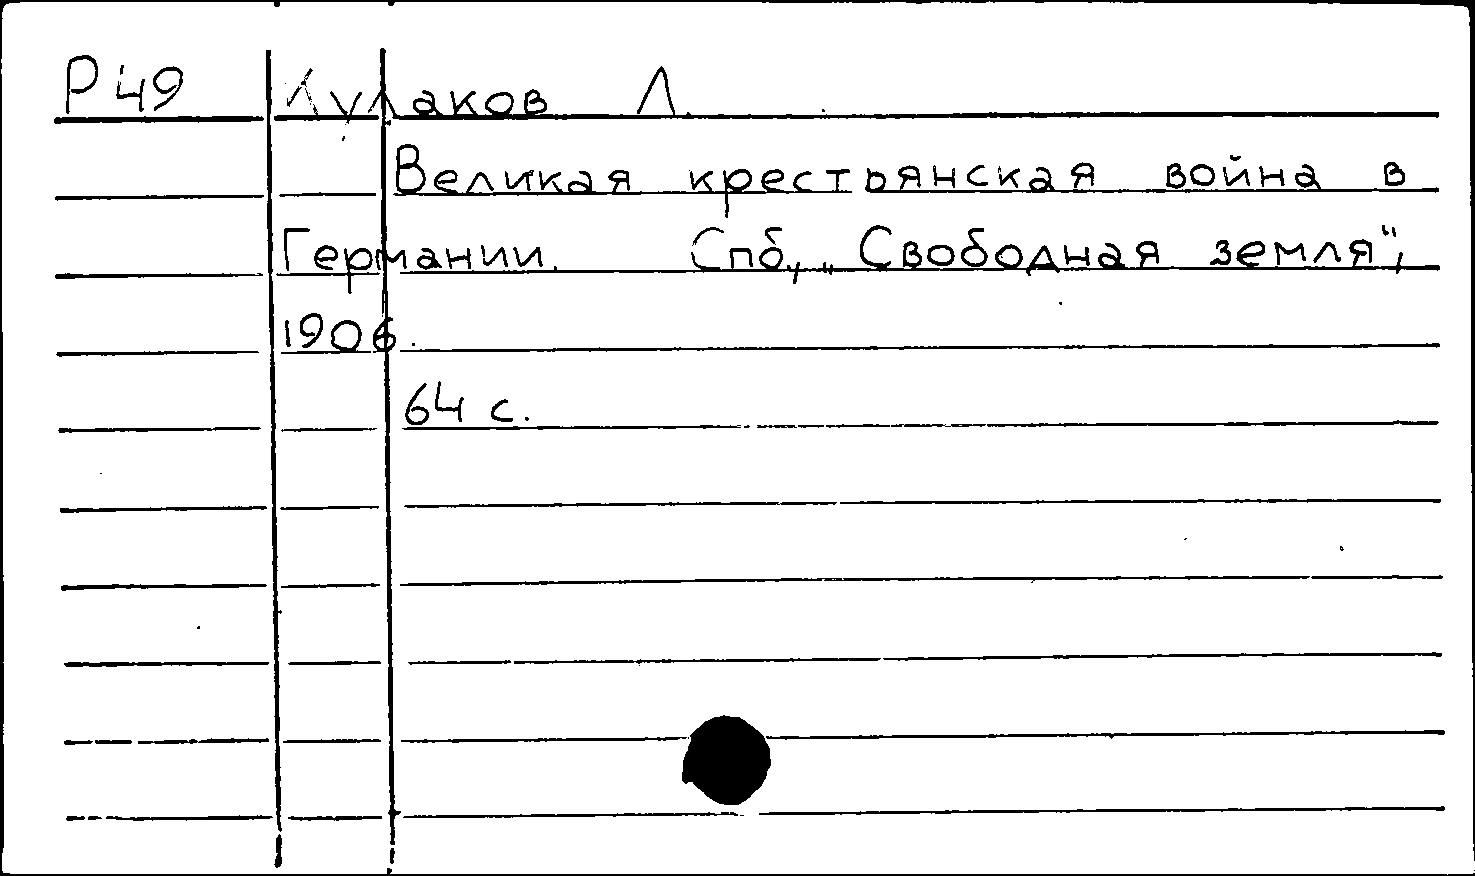 Р49 Кулаков Л.
Великая крестьянская война в
Германии. Спб, „Свободная земля“,
1906.
64 с.